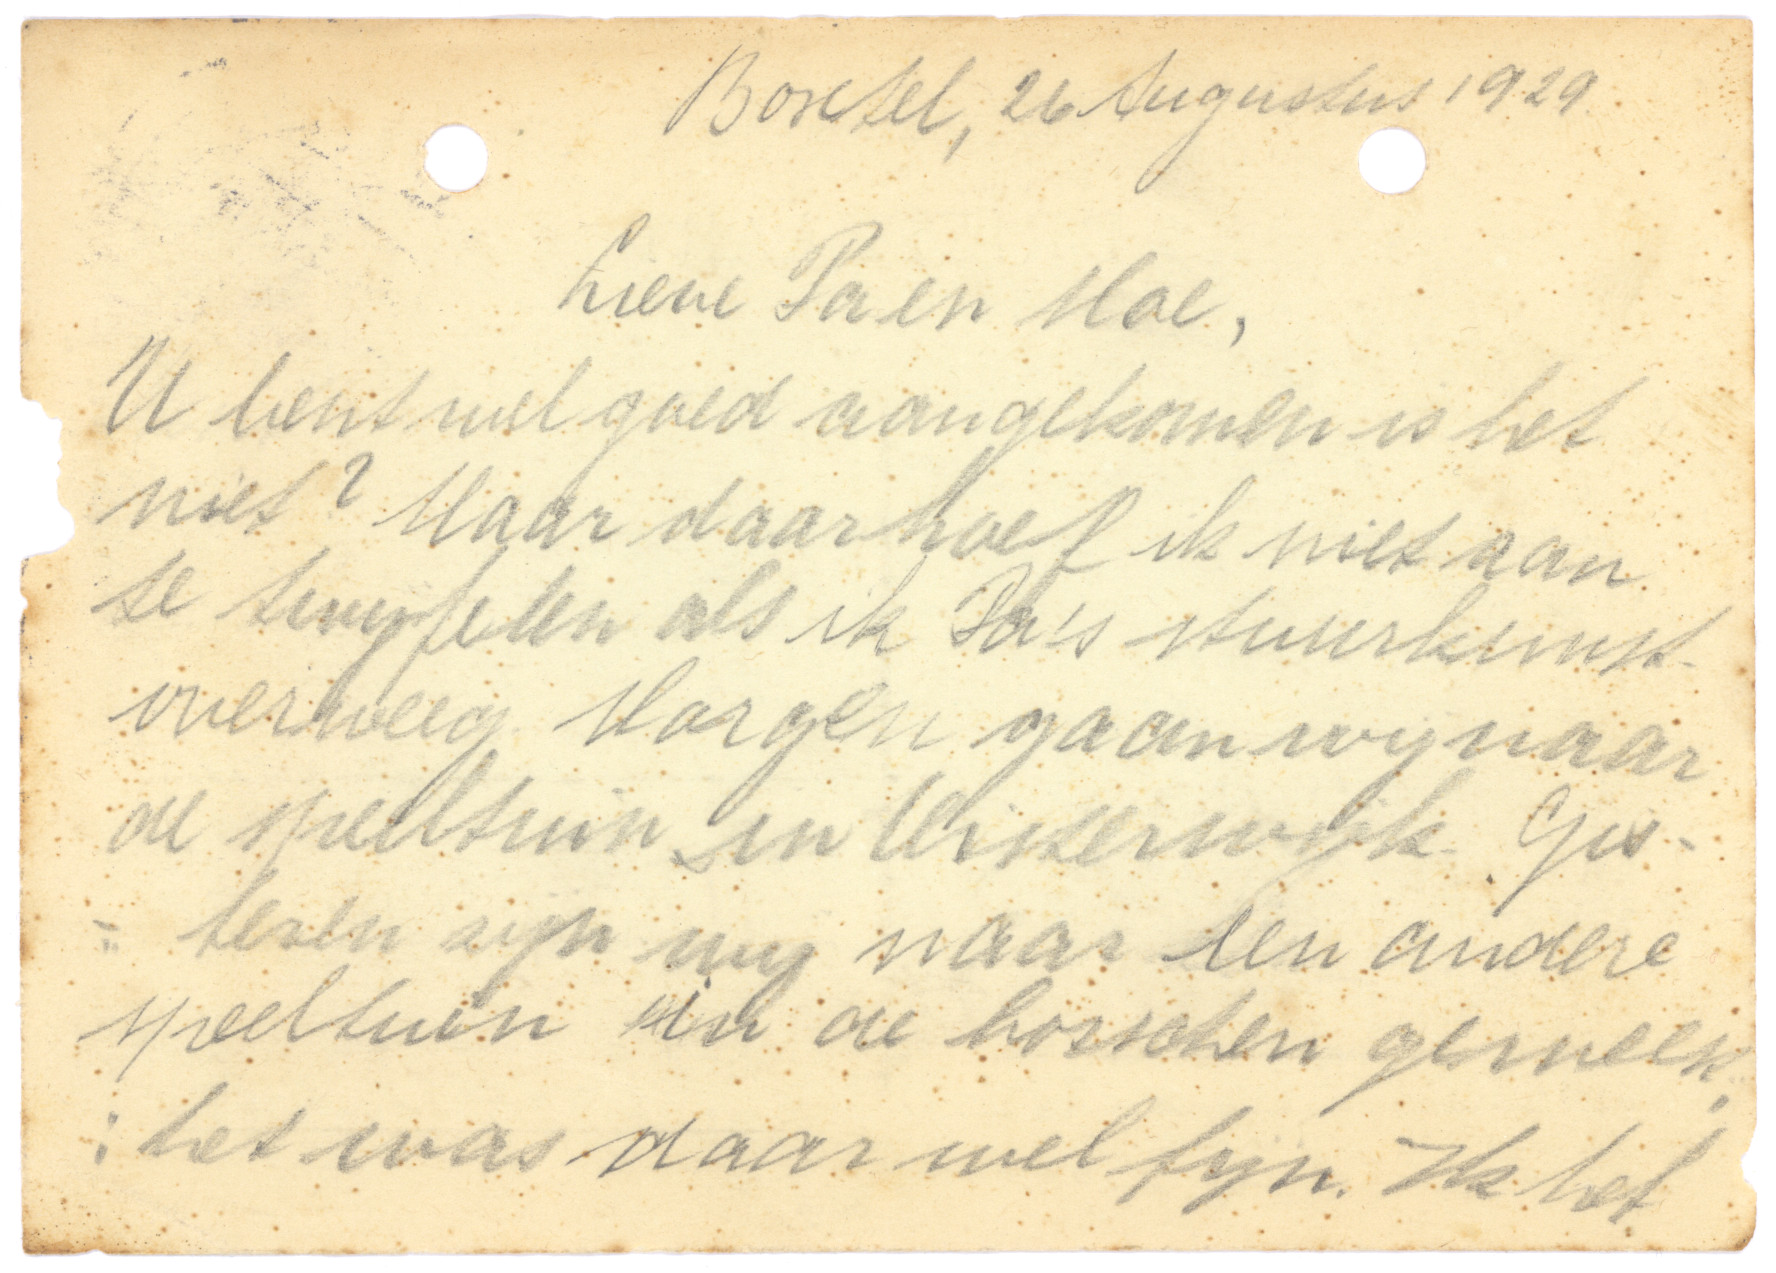 Boxtel, 26 Augustus 1929
Lieve Pa en Moe,
U bent wel goed aangekomen is het
niet? Maar daar hoef ik niet aan
te twyfelen als ik Pa's stuurkunst
overweeg Morgen gaan wy naar
de speeltuin in Oisterwijk. Gis-
= teren zyn wy naar een andere
speeltuin in de bosschen geweest
; het was daar wel fyn. Ik heb